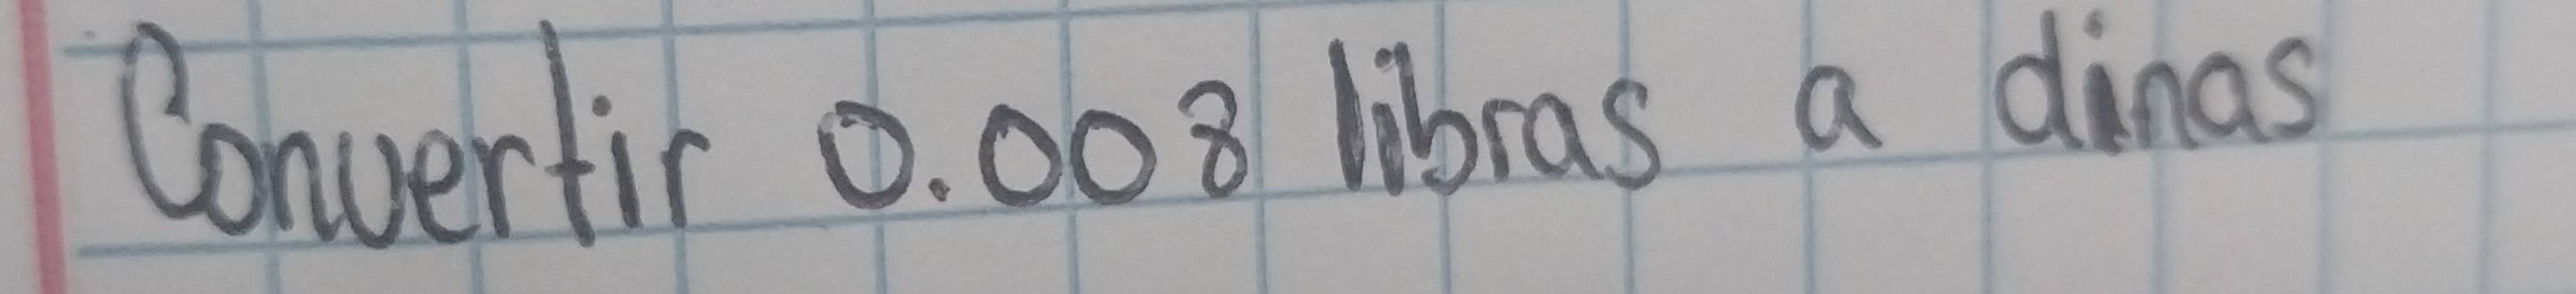 Convertir 0.008 libras a dinas